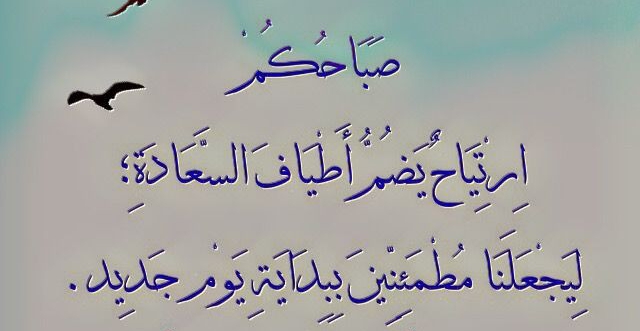 صَبَاحُكُمْ
اِرتِيَاحٌ يَضمُّ أَطْيَافَ السَّعَادَةِ؛
لِيَجْعَلَنَا مُطْمَئِنِّينَ بِبِدَايَةِ يَوْم جَدِيدِ.